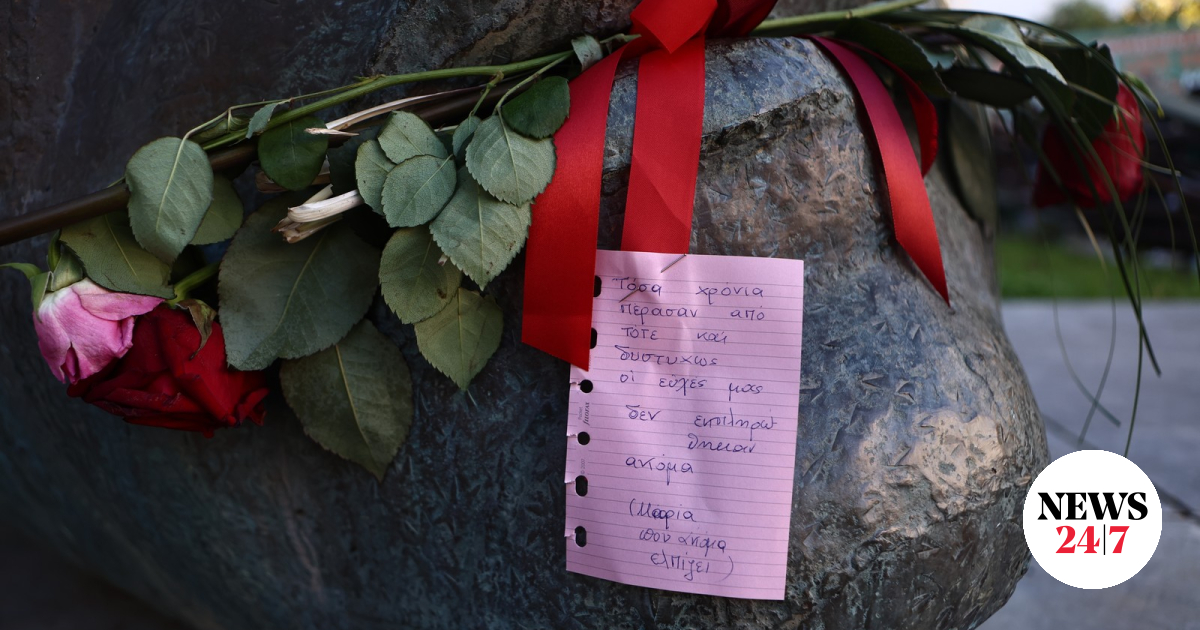 Τόσα χρόνια
πέρασαν από
τότε και
δυστυχώς
οι ευχές μας
δεν εκπληρώ
θηκαν
ακόμα
(Μαρία
που ακόμα
ελπίζει)
NEWS
24|7